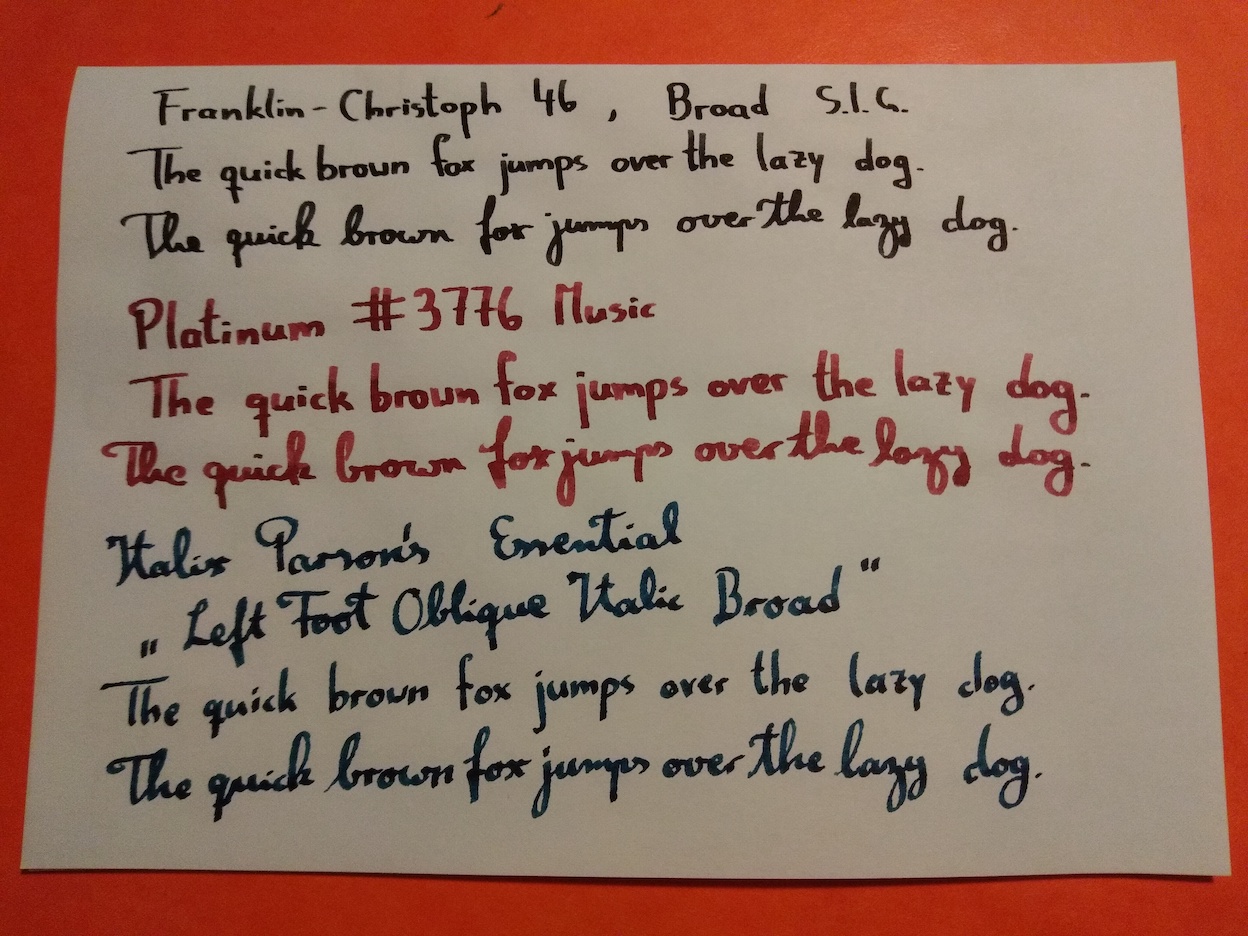 Franklin-Christoph 46, Broad S.I.G.
The quick brown fox jumps over the lazy dog.
The quick brown fox jumps over the lazy dog.
Platinum #3776 Music
The quick brown fox jumps over the lazy dog.
The quick brown fox jumps over the lazy dog.
Italix Parson's Essential
„Left Foot Oblique Italic Broad"
The quick brown fox jumps over the lazy dog.
The quick brown fox jumps over the lazy dog.